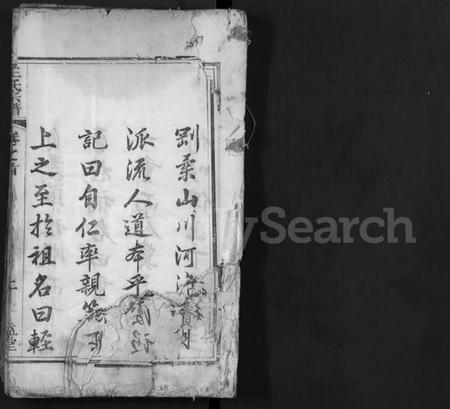 剛柔山川河海
派流人道本乎
記曰自仁率親等而
上之至於祖名曰輕
氏宗譜
卷之首
堂
FamilySearch